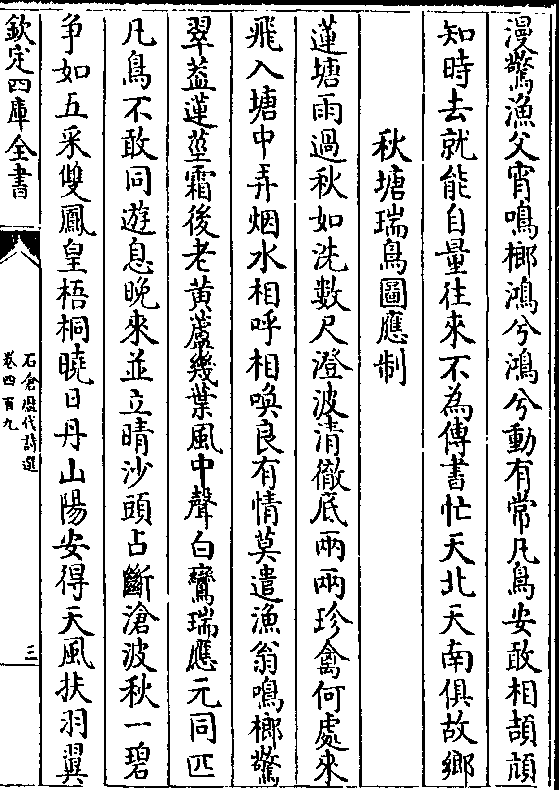 漫驚漁父宵鳴榔鴻兮鴻兮動有常凡鳥安敢相頡頏
知時去就能自量往來不為傳書忙天北天南俱故鄉
秋塘瑞鳥圖應制
蓮塘雨過秋如洗數尺澄波清徹底兩兩珍禽何處來
飛入塘中弄烟水相呼相喚良有情莫遣漁翁鳴榔驚
翠葢蓮莖霜後老黄蘆幾葉風中聲白鸞瑞應元同匹
凡鳥不敢同遊息晚來並立晴沙頭占斷滄波秋一碧
争如五采雙鳳皇梧桐曉日丹山陽安得天風扶羽翼
欽定四庫全書
石倉歷代詩選
卷四百九
三